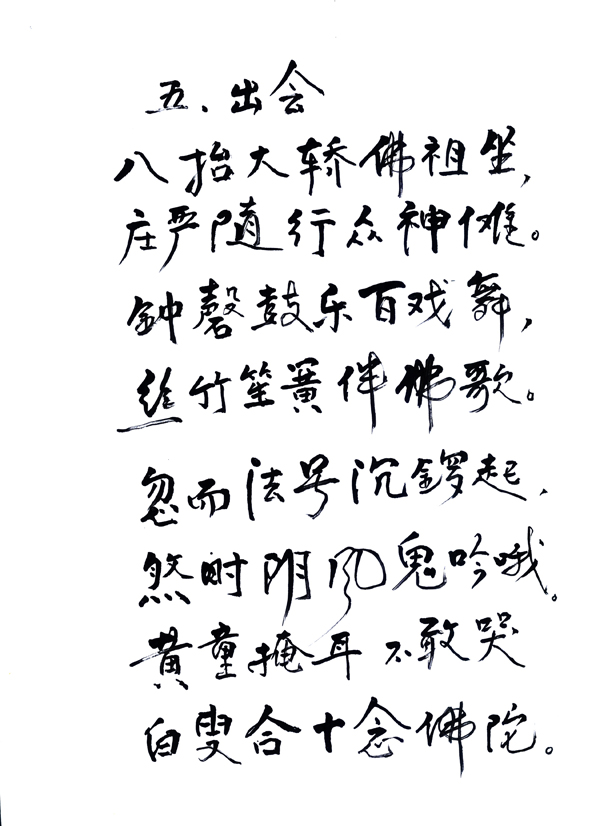 五、出会
八抬大轿佛祖坐，
庄严随行众神傩。
钟磬鼓乐百戏舞，
丝竹笙簧伴佛歌。
忽而法号沉锣起、
煞时阴风鬼吟哦。
黄童掩耳不敢哭
白叟合十念佛陀。